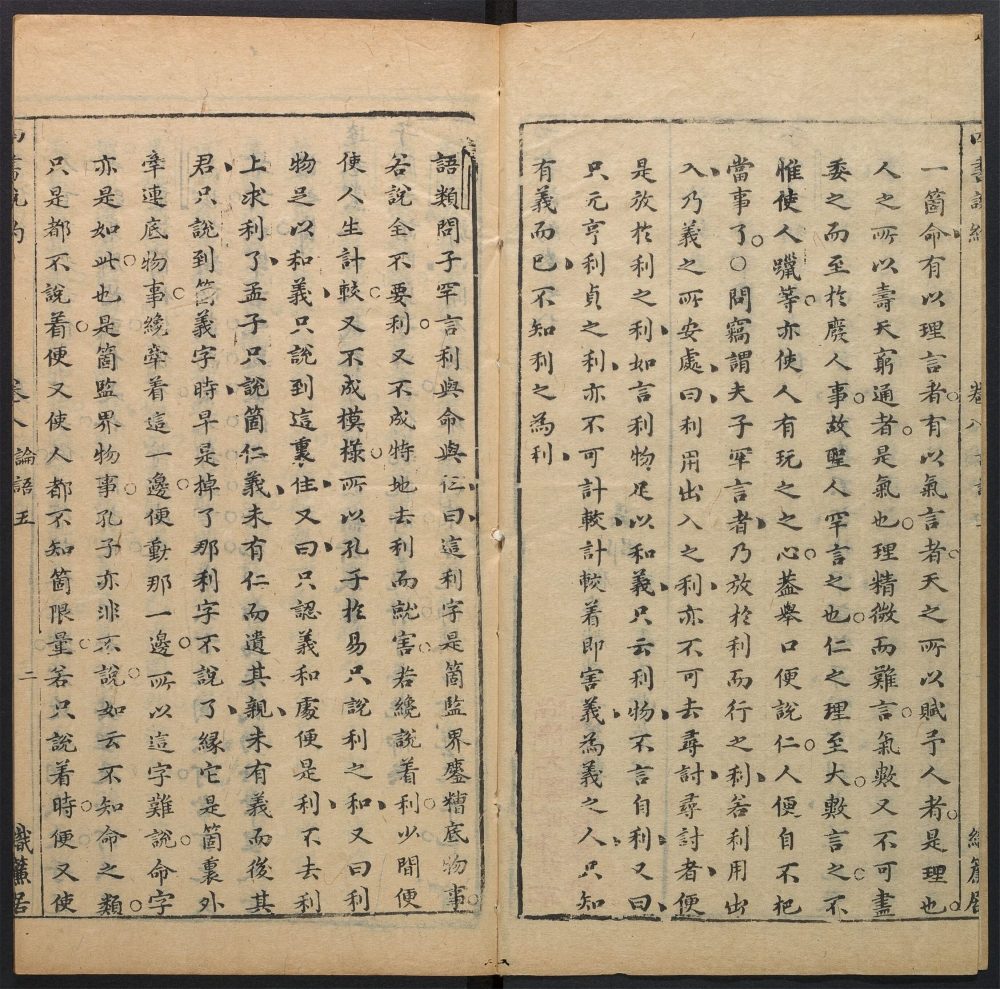 一箇命有以理言者有以氣言者天之所以賦予人者是理也
人之所以壽夭窮通者是氣也理精微而難言氣數又不可盡
委之而至於廢人事故聖人罕言之也仁之理至大數言之不
惟使人躐等亦使人有玩之之心蓋舉口便說仁人便自不把
當事了○問竊謂夫子罕言者乃放於利而行之利若利用出
入乃義之所安處曰利用出入之利亦不可去尋討尋討者便
是放於利之利如言利物足以和義只云利物不言自利又曰
只元亨利貞之利亦不可計較計較着即害義為義之人只知
有義而已不知利之為利
語類問子罕言利與命與仁曰這利字是箇監界鏖糟底物事
若說全不要利又不成特地去利而就害若纔說着利少間便
使人生計較又不成模樣所以孔子於易只說利之和又曰利
物足以和義只說到這裏住又曰只認義和處便是利不去利
上求利了孟子只說箇仁義未有仁而遺其親未有義而後其
君只說到箇義字時早是掉了那利字不說了緣它是箇裏外
牽連底物事纔牽着這一邊便動那一邊所以這字難說命字
亦是如此也是箇監界物事孔子亦非不說如云不知命之類
只是都不說着便又使人都不知箇限量若只說着時便又使
卷八 論語五
二
織簾居